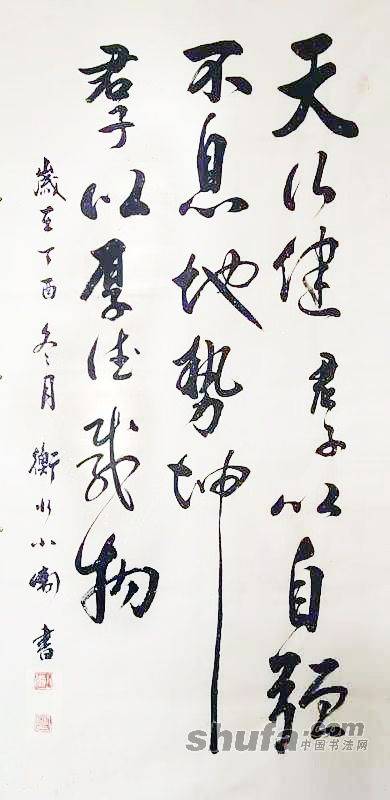 天行健君子以自强
不息地势坤
君子以厚德载物
岁在丁酉冬月衡水小刚书
shufa.com
中国书法网